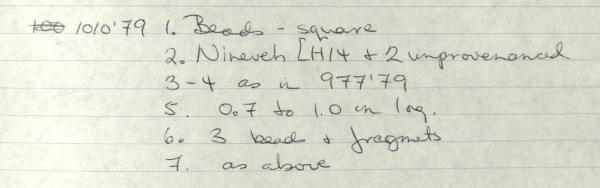 1010'79 1. Beads - square
2. Nineveh [H14 + 2 unprovenanced
3-4 as in 977'79
5. 0.7 to 1.0 cm long.
6. 3 beads + fragmets
7. as above